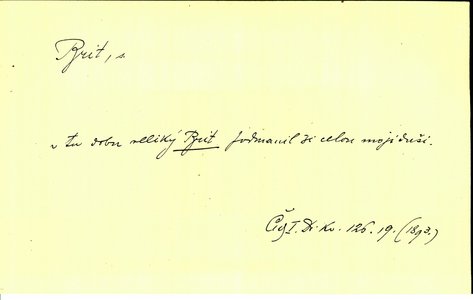 Brit, s.
v tu dobu veliký Brit podmanil si celou moji duši.
Čig I. Di. Kv. 126. 19. (1893.)